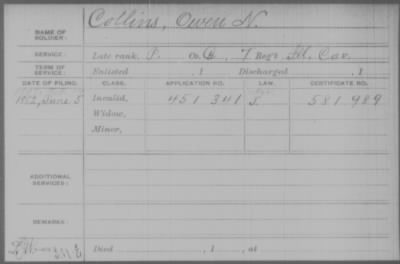 Collins, Owen N.
NAME OF
SOLDIER:
SERVICE: Late rank, P. Co. G, 7 Reg't Ill. Cav.
TERM OF
SERVICE: Enlisted , 1 Discharged , 1
DATE OF FILING. CLASS. APPLICATION NO. LAW. CERTIFICATE NO.
1882, June 5 Invalid, 451 341 581 989
Widow,
Minor,
ADDITIONAL
SERVICES:
REMARKS:
Died , 1 , at